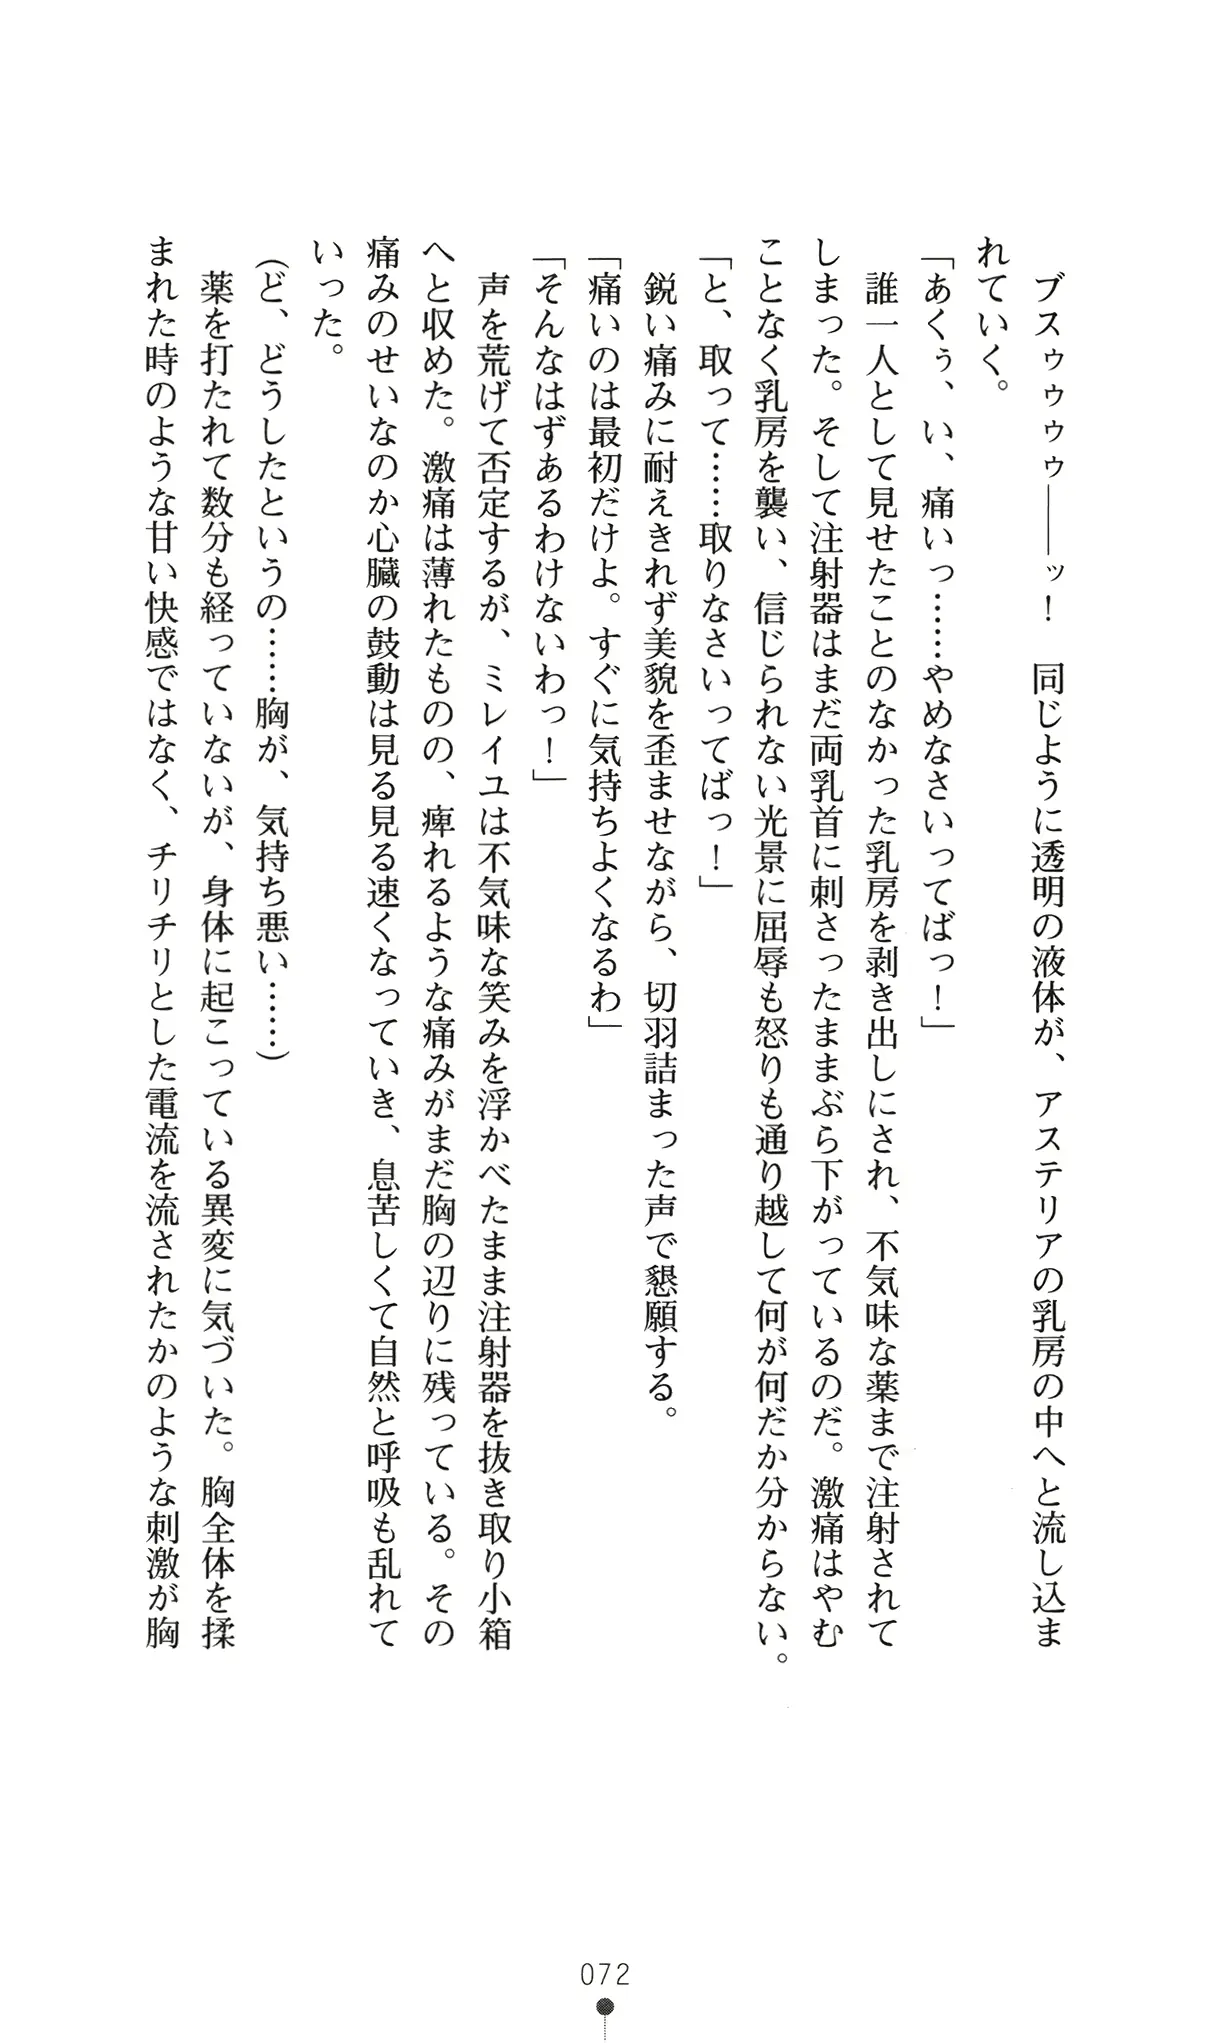 ブスゥゥゥゥ――ッ！　同じように透明の液体が、アステリアの乳房の中へと流し込ま
れていく。
「あくぅ、い、痛いっ……やめなさいってばっ！」
　誰一人として見せたことのなかった乳房を剥き出しにされ、不気味な薬まで注射されて
しまった。そして注射器はまだ両乳首に刺さったままぶら下がっているのだ。激痛はやむ
ことなく乳房を襲い、信じられない光景に屈辱も怒りも通り越して何が何だか分からない。
「と、取って……取りなさいってばっ！」
　鋭い痛みに耐えきれず美貌を歪ませながら、切羽詰まった声で懇願する。
「痛いのは最初だけよ。すぐに気持ちよくなるわ」
「そんなはずあるわけないわっ！」
　声を荒げて否定するが、ミレイユは不気味な笑みを浮かべたまま注射器を抜き取り小箱
へと収めた。激痛は薄れたものの、痺れるような痛みがまだ胸の辺りに残っている。その
痛みのせいなのか心臓の鼓動は見る見る速くなっていき、息苦しくて自然と呼吸も乱れて
いった。
（ど、どうしたというの……胸が、気持ち悪い……）
　薬を打たれて数分も経っていないが、身体に起こっている異変に気づいた。胸全体を揉
まれた時のような甘い快感ではなく、チリチリとした電流を流されたかのような刺激が胸
072